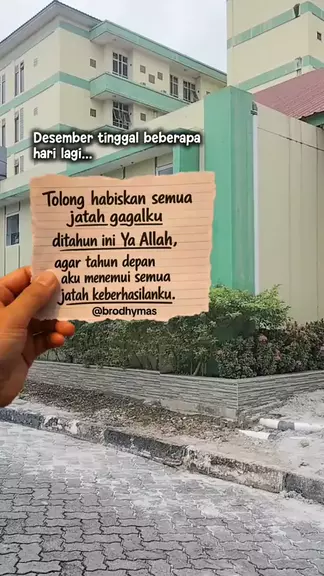 Desember tinggal beberapa
hari lagi...
Tolong habiskan semua
jatah gagalku
ditahun ini Ya Allah,
agar tahun depan
aku menemui semua
jatah keberhasilanku.
@brodhymas